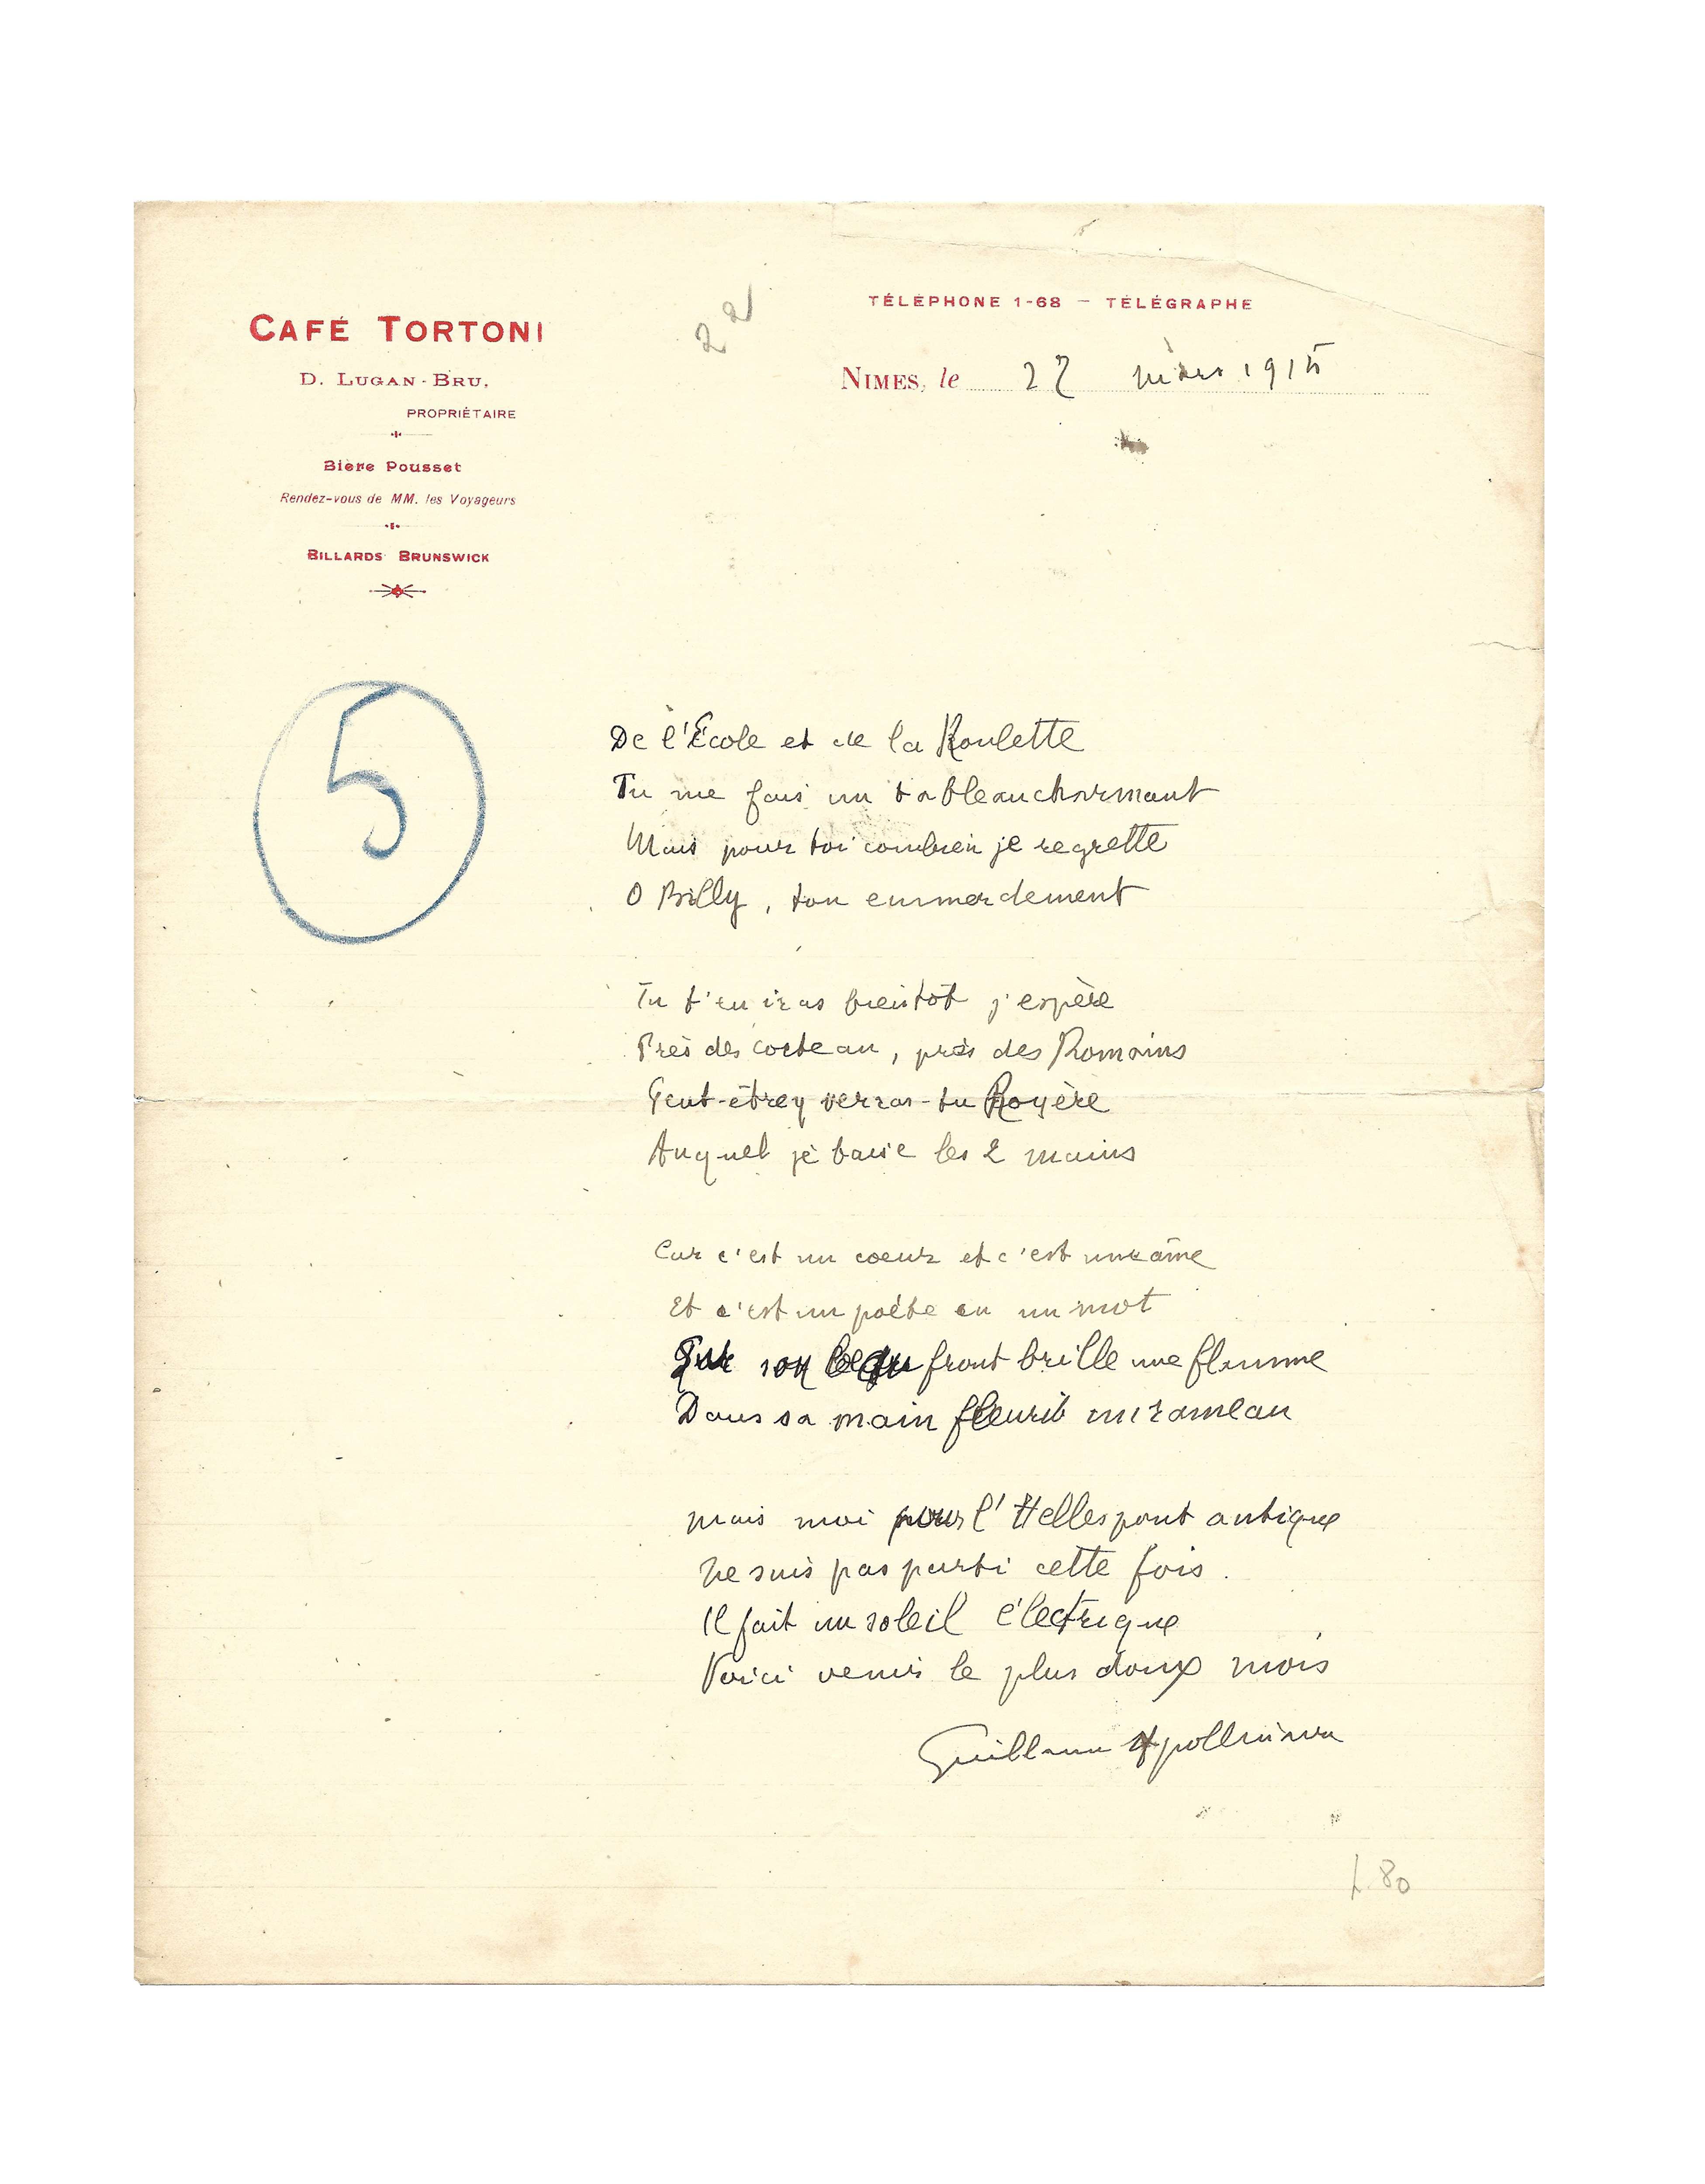 CAFÉ TORTONI
D. LUGAN-BRU,
PROPRIÉTAIRE
Bière Pousset
Rendez-vous de MM. les Voyageurs
BILLARDS BRUNSWICK
22
TÉLÉPHONE 1-68 — TÉLÉGRAPHE
NIMES, le 22 mars 1915
5
De l'École et de la Roulette
Tu me fais un tableau charmant
Mais pour toi combien je regrette
O Billy, ton emmerdement
Tu t'en iras bientôt j'espère
Près des cocteau, près des Romains
Peut-être y verras-tu Royère
Auquel je baise les 2 mains
Car c'est un coeur et c'est une âme
Et c'est un poète en un mot
Sur son beau front brille une flamme
Dans sa main fleurit un rameau
Mais moi pour l'Hellespont antique
Ne suis pas parti cette fois.
Il fait un soleil électrique
Voici venir le plus doux mois
Guillaume Apollinaire
80